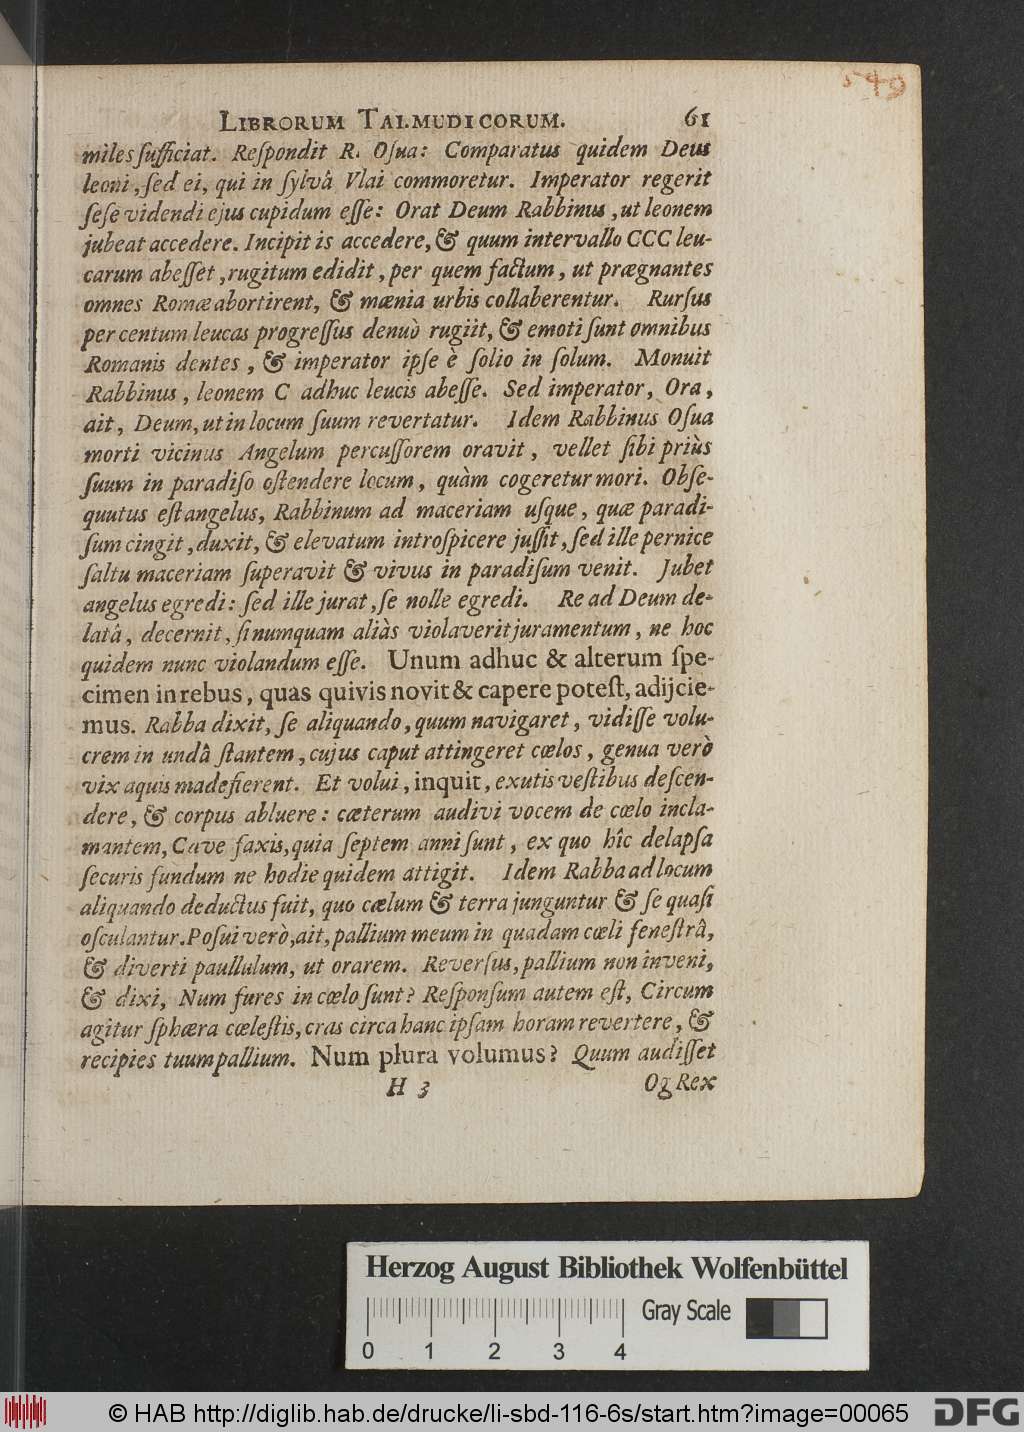 549
LIBRORUM TALMUDICORUM. 61
miles ſufficiat. Reſpondit R. Oſua: Comparatus quidem Deus
leoni, ſed ei, qui in ſylvâ Vlai commoretur. Imperator regerit
ſeſe videndi ejus cupidum eſſe: Orat Deum Rabbinus, ut leonem
jubeat accedere. Incipit is accedere, & quum intervallo CCC leu-
carum abeſſet, rugitum edidit, per quem factum, ut prægnantes
omnes Romæ abortirent, & mænia urbis collaberentur. Rurſus
per centum leucas progreſſus denuò rugiit, & emoti ſunt omnibus
Romanis dentes, & imperator ipſe è ſolio in ſolum. Monuit
Rabbinus, leonem C adhuc leucis abeſſe. Sed imperator, Ora,
ait, Deum, ut in locum ſuum revertatur. Idem Rabbinus Oſua
morti vicinus Angelum percuſſorem oravit, vellet ſibi priùs
ſuum in paradiſo oſtendere locum, quàm cogeretur mori. Obſe-
quutus eſt angelus, Rabbinum ad maceriam uſque, quæ paradi-
ſum cingit, duxit, & elevatum introſpicere juſſit, ſed ille pernice
ſaltu maceriam ſuperavit & vivus in paradiſum venit. Jubet
angelus egredi: ſed ille jurat, ſe nolle egredi. Re ad Deum de-
latâ, decernit, ſi numquam aliàs violaverit juramentum, ne hoc
quidem nunc violandum eſſe. Unum adhuc & alterum ſpe-
cimen in rebus, quas quivis novit & capere poteſt, adijcie-
mus. Rabba dixit, ſe aliquando, quum navigaret, vidiſſe volu-
crem in undâ ſtantem, cujus caput attingeret cœlos, genua verò
vix aquis madefierent. Et volui, inquit, exutis veſtibus deſcen-
dere, & corpus abluere: cæterum audivi vocem de cœlo incla-
mantem, Cave faxis, quia ſeptem anni ſunt, ex quo hîc delapſa
ſecuris fundum ne hodie quidem attigit. Idem Rabba ad locum
aliquando deductus fuit, quo cælum & terra junguntur & ſe quaſi
oſculantur. Poſui verò, ait, pallium meum in quadam cœli feneſtrâ,
& diverti paullulum, ut orarem. Reverſus, pallium non inveni,
& dixi, Num fures in cœlo ſunt? Reſponſum autem eſt, Circum
agitur ſphæra cœleſtis, cras circa hanc ipſam horam revertere, &
recipies tuum pallium. Num plura volumus? Quum audiſſet
H 3 Og Rex
Herzog August Bibliothek Wolfenbüttel
Gray Scale
0 1 2 3 4
© HAB http://diglib.hab.de/drucke/li-sbd-116-6s/start.htm?image=00065 DFG